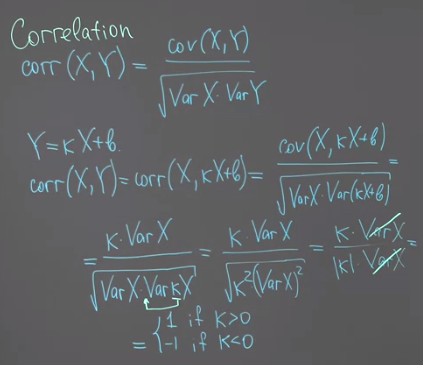 Correlation
corr(X,Y) = cov(X,Y) / √(VarX · VarY)
Y = kX+b.
corr(X,Y) = corr(X, kX+b) = cov(X, kX+b) / √(VarX · Var(kX+b)) =
= k·VarX / √(VarX · VarkX) = k·VarX / √(k²(VarX)²) = k·VarX / |k|·VarX =
= { 1 if k>0
-1 if k<0